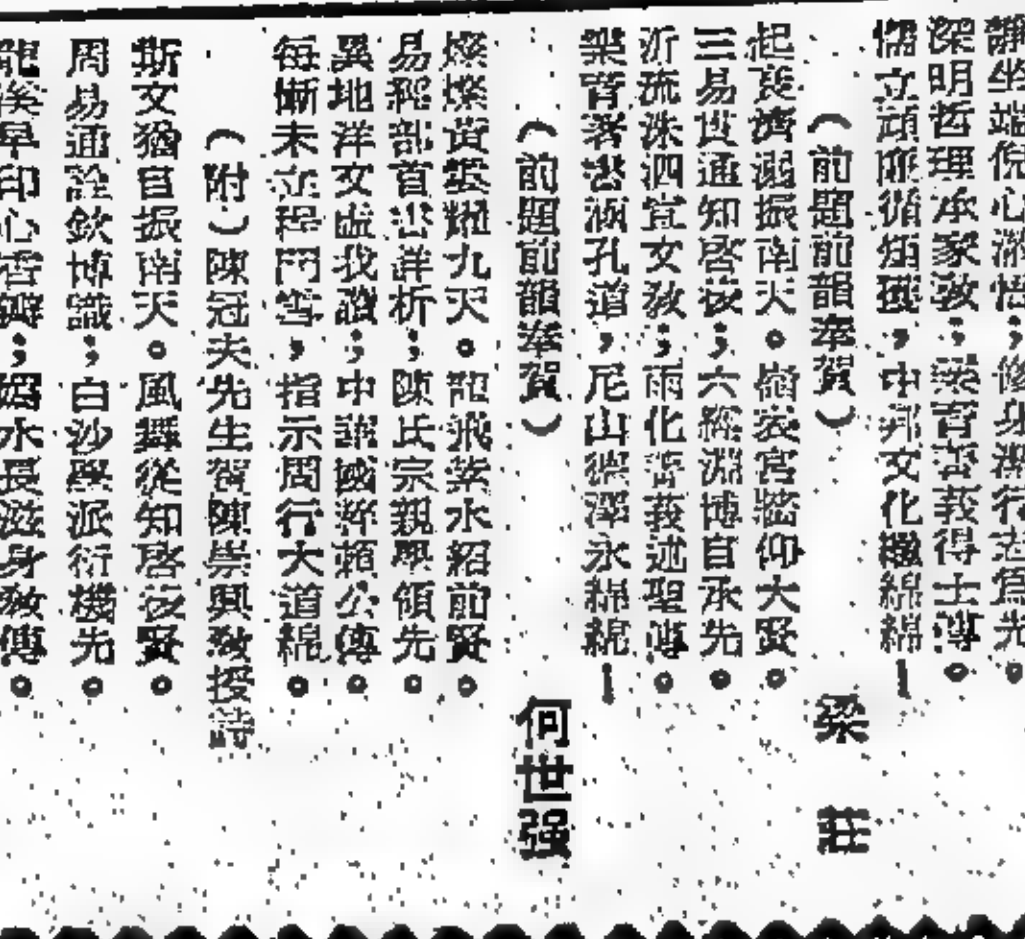 靜坐端倪心漸悟；修身潔行志爲先。
深明哲理承家教；樂育菁莪得士傳。
儒立頑廉循矩矱，中邦文化繼綿綿！
（前題前韻奉賀）　梁　莊
起衰濟溺振南天。嶺表宮牆仰大賢。
三易貫通知啓後；六經淵博自承先。
沂流洙泗宣文教；雨化菁莪述聖傳。
樂育羣才涵孔道，尼山德澤永綿綿！
（前題前韻奉賀）　何世强
燦燦黃裳耀九天。龍飛柴水紹前賢。
易經部首善詳析；陳氏宗親學領先。
異地洋文虛我讀；中華國粹賴公傳。
每慚未立程門雪，指示周行大道綿。
（附）陳冠夫先生賀陳崇興教授詩
斯文猶自振南天。風舞從知啓後賢。
周易通詮欽博識；白沙學派衍機先。
早印心香瓣；水長滋身教傳。